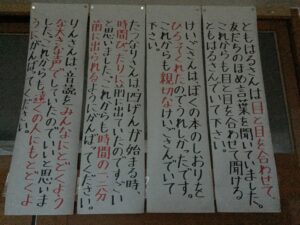 ともはるさんは目と目を合わせて
友だちのほめ言葉を聞いていました。
これからも目と目を合わせて聞ける
ともはるさんでいて下さい。
けいごさんはぼくの本のしおりを
ひろってくれたのでうれしかったです。
これからも親切なけいごさんでいて
下さい。
たつなりさんは四げんが始まる時
時間ぴたりに前に出ていたのですごい
と思いました。これからも時間の二分
前に出られるようにがんばってください。
りんさんは音読をみんなにとどくよう
な大きな声でしていたのでいいと思いま
した。これからも遠くの人にもとどくよ
うにがんばってください。